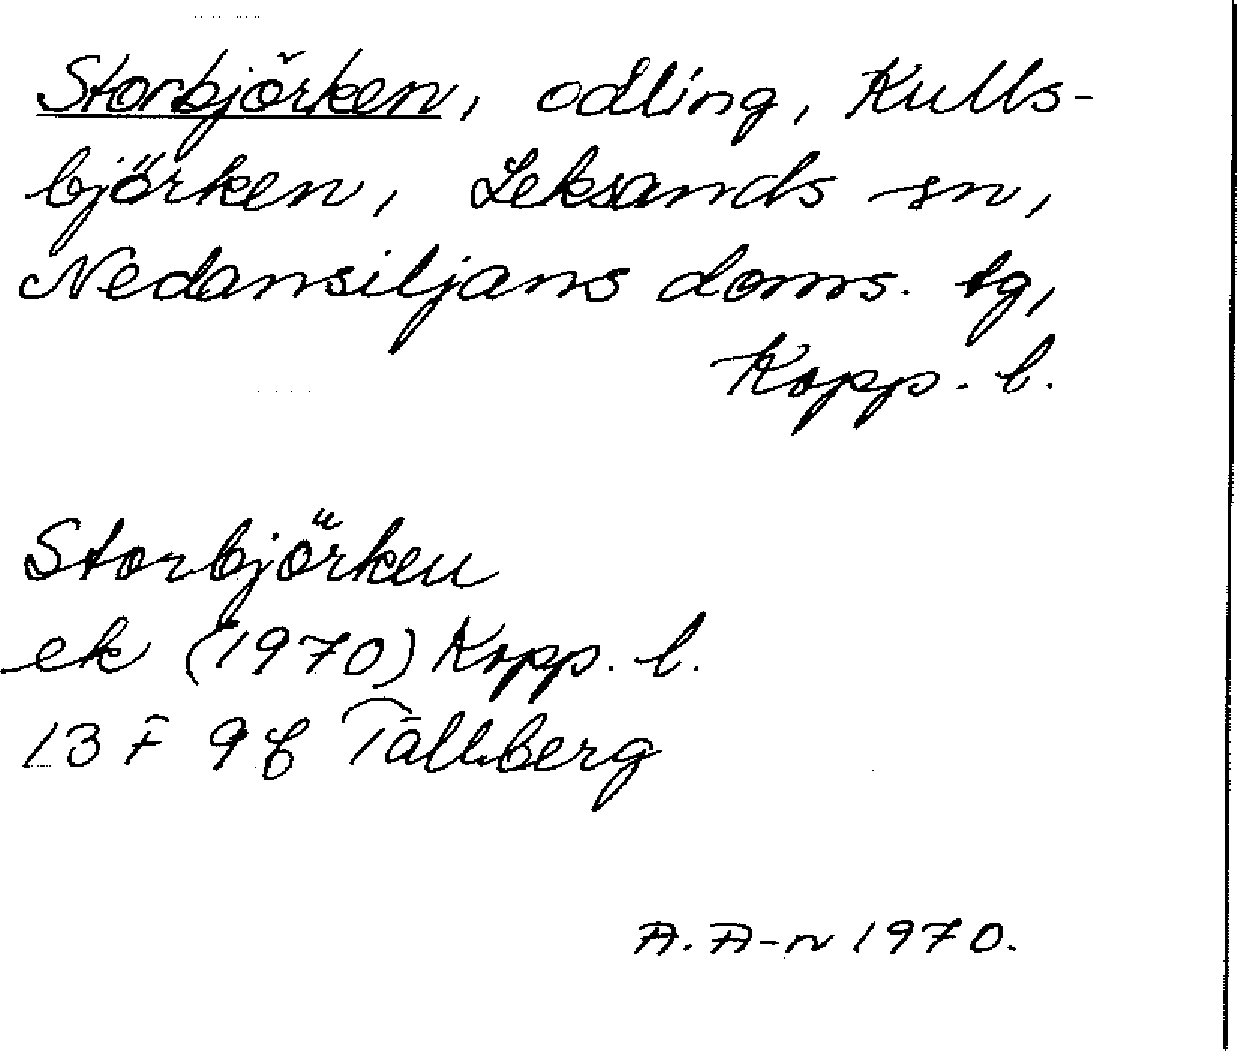 Storbjörken, odling, Kulls-
björken, Leksands sn,
Nedansiljans doms. tg,
Kopp. l.
Storbjörken
ek (1970) Kopp. l.
13 F 9 f Tällberg
A. A-n 1970.